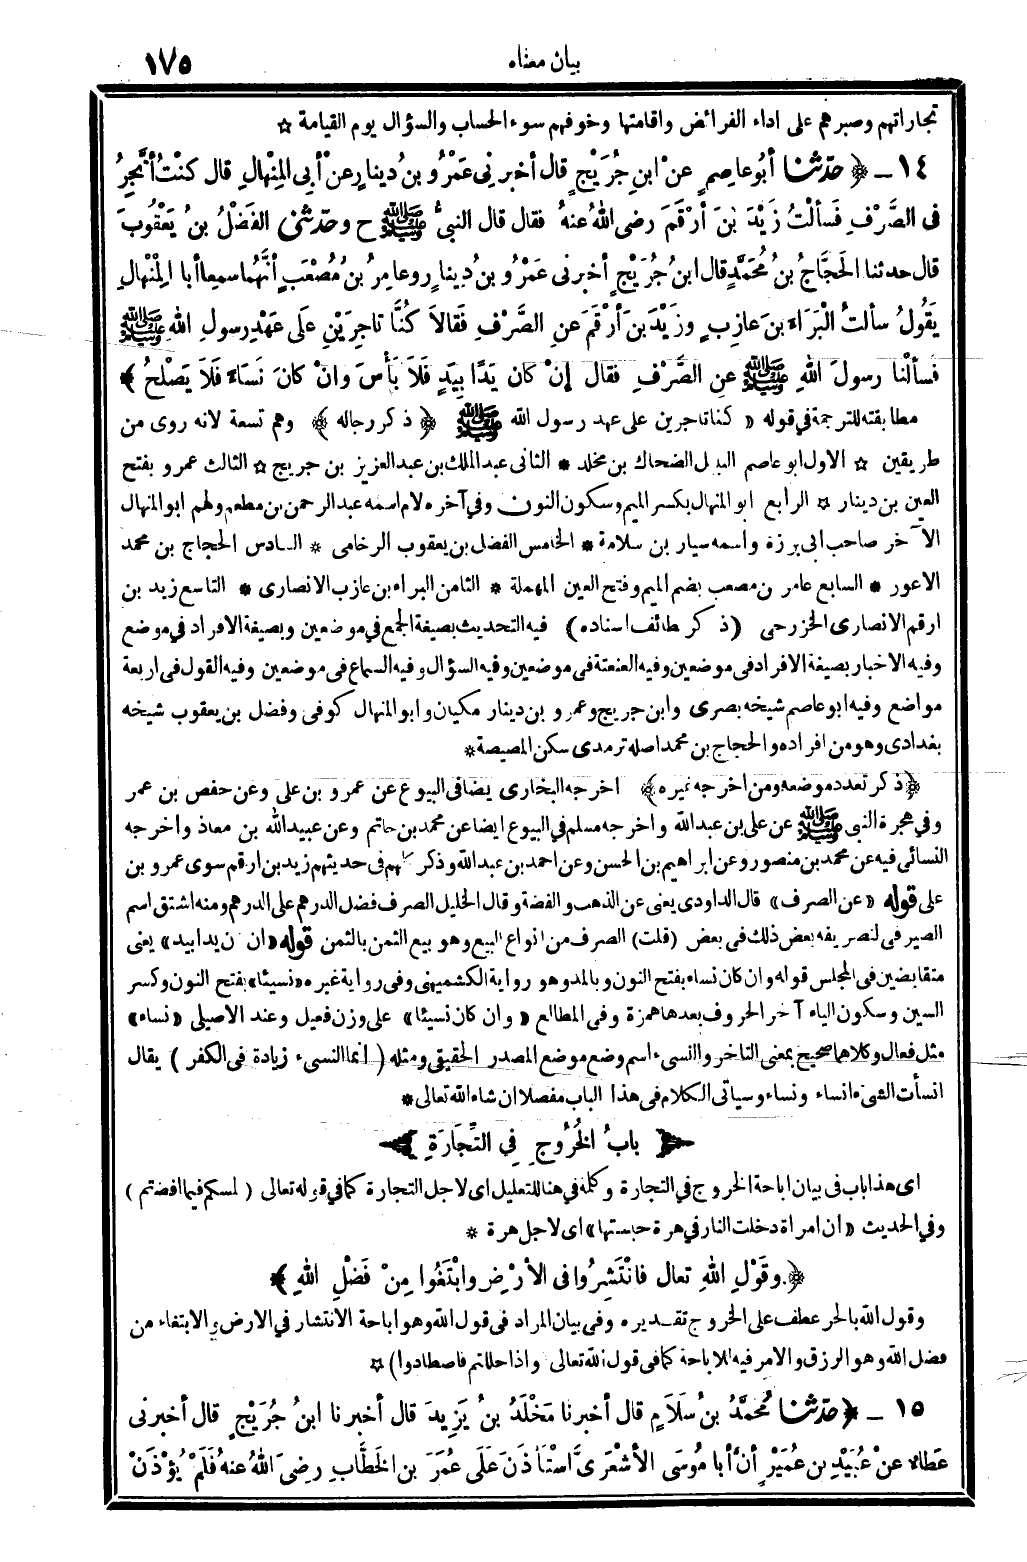 بيان معناه
١٧٥
تجاراتهم وصبرهم على اداء الفرائض واقامتها وخوفهم سوء الحساب والسؤال يوم القيامة ☆
١٤ ـ ﴿ حَدَّثنا أَبُو عاصِمٍ عنْ ابنِ جُرَيْجٍ قال أخبرنى عَمْرُو بنُ دِينارٍ عنْ أبى المِنْهالِ قال كنْتُ أتَّجِرُ
فى الصَّرْفِ فَسألْتُ زَيْدَ بنَ أرْقَمَ رضى اللهُ عنهُ فقال قال النبىُّ ﷺ ح وحدّثنى الفَضْلُ بنُ يَعْقُوبَ
قال حدثنا الحَجَّاجُ بنُ مُحَمَّدٍ قال ابنُ جُرَيْجٍ أخبرنى عَمْرُو بنُ دِينارٍ وعامِرُ بنُ مُصْعَبٍ أنَّهُما سمِعا أبا المِنْهالِ
يَقُولُ سألتُ الْبَرَاءَ بنَ عازِبٍ وزَيْدَ بنَ أرْقَمَ عنِ الصَّرْفِ فَقالاَ كُنَّا تاجِرَيْنِ عَلَى عَهْدِ رسولِ اللهِ ﷺ
فَسألْنا رسولَ اللهِ ﷺ عنِ الصَّرْفِ فقال إنْ كان يَدًا بِيَدٍ فَلاَ بَأْسَ وانْ كانَ نَسَاءً فَلاَ يَصْلُحُ ﴾
مطابقته للترجمة فى قوله « كنا تاجرين على عهد رسول الله ﷺ ﴿ ذكر رجاله ﴾ وهم تسعة لانه روى من
طريقين ☆ الاول ابو عاصم النبيل الضحاك بن مخلد * الثانى عبد الملك بن عبد العزيز بن جريج ☆ الثالث عمرو بفتح
العين بن دينار ☆ الرابع ابو المنهال بكسر الميم وسكون النون وفى آخره لام اسمه عبد الرحمن بن مطعم ولهم ابو المنهال
الآخر صاحب ابى برزة واسمه سيار بن سلامة * الخامس الفضل بن يعقوب الرخامى * السادس الحجاج بن محمد
الاعور * السابع عامر بن مصعب بضم الميم وفتح العين المهملة * الثامن البراء بن عازب الانصارى * التاسع زيد بن
ارقم الانصارى الخزرجى (ذكر لطائف اسناده) فيه التحديث بصيغة الجمع فى موضعين وبصيغة الافراد فى موضع
وفيه الاخبار بصيغة الافراد فى موضعين وفيه العنعنة فى موضعين وفيه السؤال وفيه السماع فى موضعين وفيه القول فى اربعة
مواضع وفيه ابو عاصم شيخه بصرى وابن جريج وعمرو بن دينار مكيان وابو المنهال كوفى وفضل بن يعقوب شيخه
بغدادى وهو من افراده والحجاج بن محمد اصله ترمذى سكن المصيصة *
﴿ ذكر تعدد موضعه ومن اخرجه غيره ﴾ اخرجه البخارى يضا فى البيوع عن عمرو بن على وعن حفص بن عمر
وفى هجرة النبى ﷺ عن على بن عبد الله واخرجه مسلم فى البيوع ايضا عن محمد بن حاتم وعن عبيد الله بن معاذ واخرجه
النسائى فيه عن محمد بن منصور وعن ابراهيم بن الحسن وعن احمد بن عبد الله وذكر كلهم فى حديثهم زيد بن ارقم سوى عمرو بن
على قوله « عن الصرف » قال الداودى يعنى عن الذهب والفضة وقال الخليل الصرف فضل الدرهم على الدرهم ومنه اشتق اسم
الصيرفى لتصريفه بعض ذلك فى بعض (قلت) الصرف من انواع البيع وهو بيع الثمن بالثمن قوله « ان كان يدا بيد » يعنى
متقابضين فى المجلس قوله وان كان نساء بفتح النون وبالمد وهو رواية الكشميهنى وفى رواية غيره « نسيئا » بفتح النون وكسر
السين وسكون الياء آخر الحروف بعدها همزة وفى المطالع « وان كان نسيئا » على وزن فعيل وعند الاصيلى « نساء »
مثل فعال وكلاهما صحيح بمعنى التاخر والنسىء اسم وضع موضع المصدر الحقيقى ومثله ( انما النسىء زيادة فى الكفر ) يقال
انسأت الشىء انساء ونساء وسياتى الكلام فى هذا الباب مفصلا ان شاء الله تعالى *
﴿ بابُ الخُرُوجِ فِي التِّجَارَةِ ﴾
اى هذا باب فى بيان اباحة الخروج فى التجارة وكلمة فى هنا للتعليل اى لاجل التجارة كما فى قوله تعالى ( لمسكم فيما افضتم )
وفى الحديث « ان امراة دخلت النار فى هرة حبستها » اى لاجل هرة *
﴿ وقَوْلِ اللهِ تعالى فانْتَشِرُوا فى الأرْضِ وابْتَغُوا مِنْ فَضْلِ اللهِ ﴾
وقول الله بالجر عطف على الخروج تقديره وفى بيان المراد فى قول الله وهو اباحة الانتشار فى الارض والابتغاء من
فضل الله وهو الرزق والامر فيه للاباحة كما فى قول الله تعالى واذا حللتم فاصطادوا ) ☆
١٥ ـ ﴿ حَدَّثنا مُحَمَّدُ بنُ سَلاَمٍ قال أخبرنا مَخْلَدُ بنُ يَزِيدَ قال أخبرنا ابنُ جُرَيْجٍ قال أخبرنى
عَطاءٌ عنْ عُبَيْدِ بن عُمَيْرٍ أنَّ أبا مُوسَى الأشْعَرِىَّ اسْتَأْذَنَ عَلَى عُمَرَ بن الخَطَّابِ رضىَ اللهُ عنهُ فَلَمْ يُؤْذَنْ